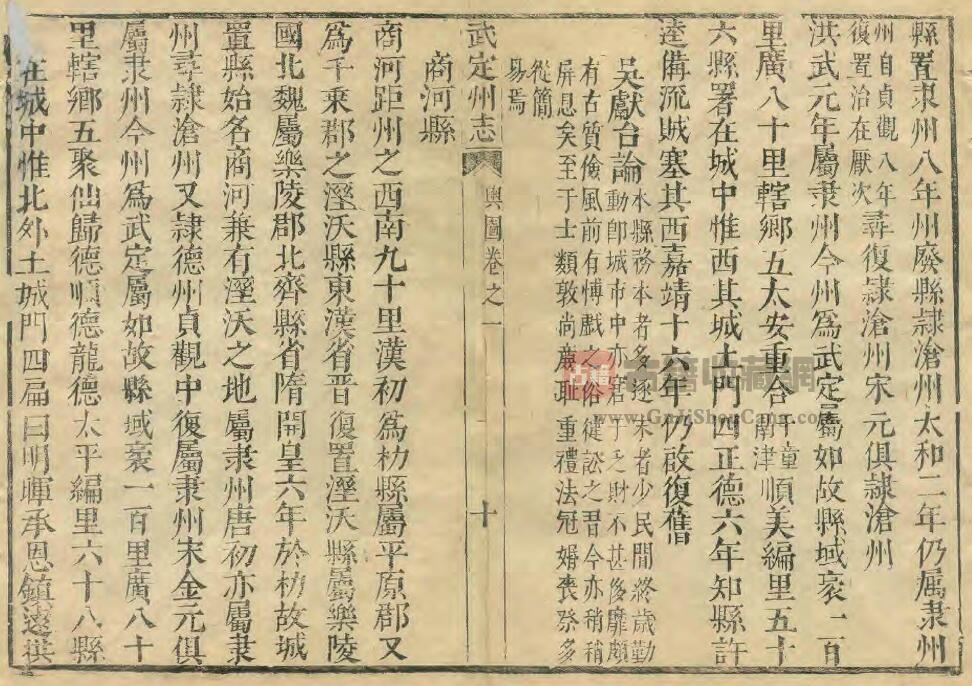 縣置隸州八年州廢縣隸滄州太和二年仍屬隸州
州自貞觀八年
復置治在厭次
尋復隸滄州宋元俱隸滄州
洪武元年屬隸州今州為武定屬如故縣域袤一百
里廣八十里轄鄉五太安重合
于童
南津
順美編里五十
六縣署在城中惟西其城土門四正德六年知縣許
逵備流賊塞其西嘉靖十六年仍啟復舊
吳獻台論
本縣務本者多逐末者少民間終歲勤
動卽城市中亦
于乏財不甚侈靡頗
有古質儉風前有愽戲之俗健訟之習今亦稍稍
屏息矣至于士類敦尚廉耻重禮法冠婚喪祭多
從簡
易焉
武定州志
輿圖卷之一
十
商河縣
商河距州之西南九十里漢初為朸縣屬平原郡又
為千乘郡之溼沃縣東漢省晉復置溼沃縣屬樂陵
國北魏屬樂陵郡北齊縣省隋開皇六年於朸故城
置縣始名商河兼有溼沃之地屬隸州唐初亦屬隸
州尋隸滄州又隸德州貞觀中復屬隸州宋金元俱
屬隸州今州為武定屬如故縣域袤一百里廣八十
里轄鄉五聚仙歸德順德龍德太平編里六十八縣
在城中惟北外土城門四扁曰明暉承恩鎮遠
古籍收藏網
www.GujiShouCang.com